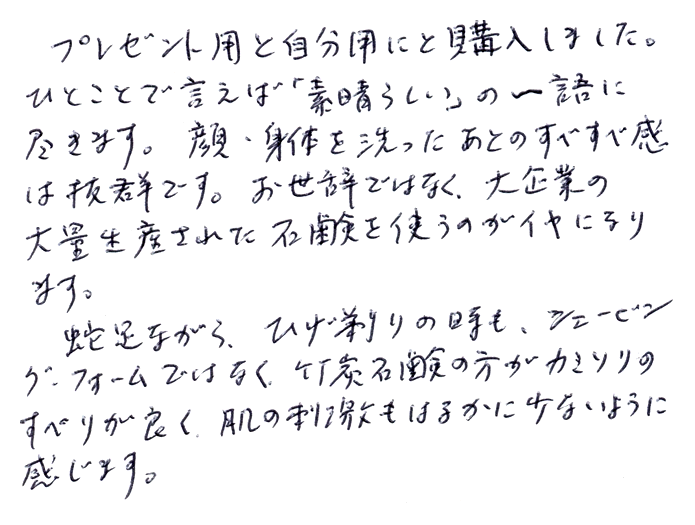 プレゼント用と自分用にと購入しました。
ひとことで言えば「素晴らしい」の一語に
尽きます。顔・身体を洗ったあとのすべすべ感
は抜群です。お世辞ではなく、大企業の
大量生産された石鹸を使うのがイヤになり
ます。
蛇足ながら、ひげ剃りの時も、シェービン
グ・フォームではなく、竹炭石鹸の方がカミソリの
すべりが良く、肌の刺激もはるかに少ないように
感じます。